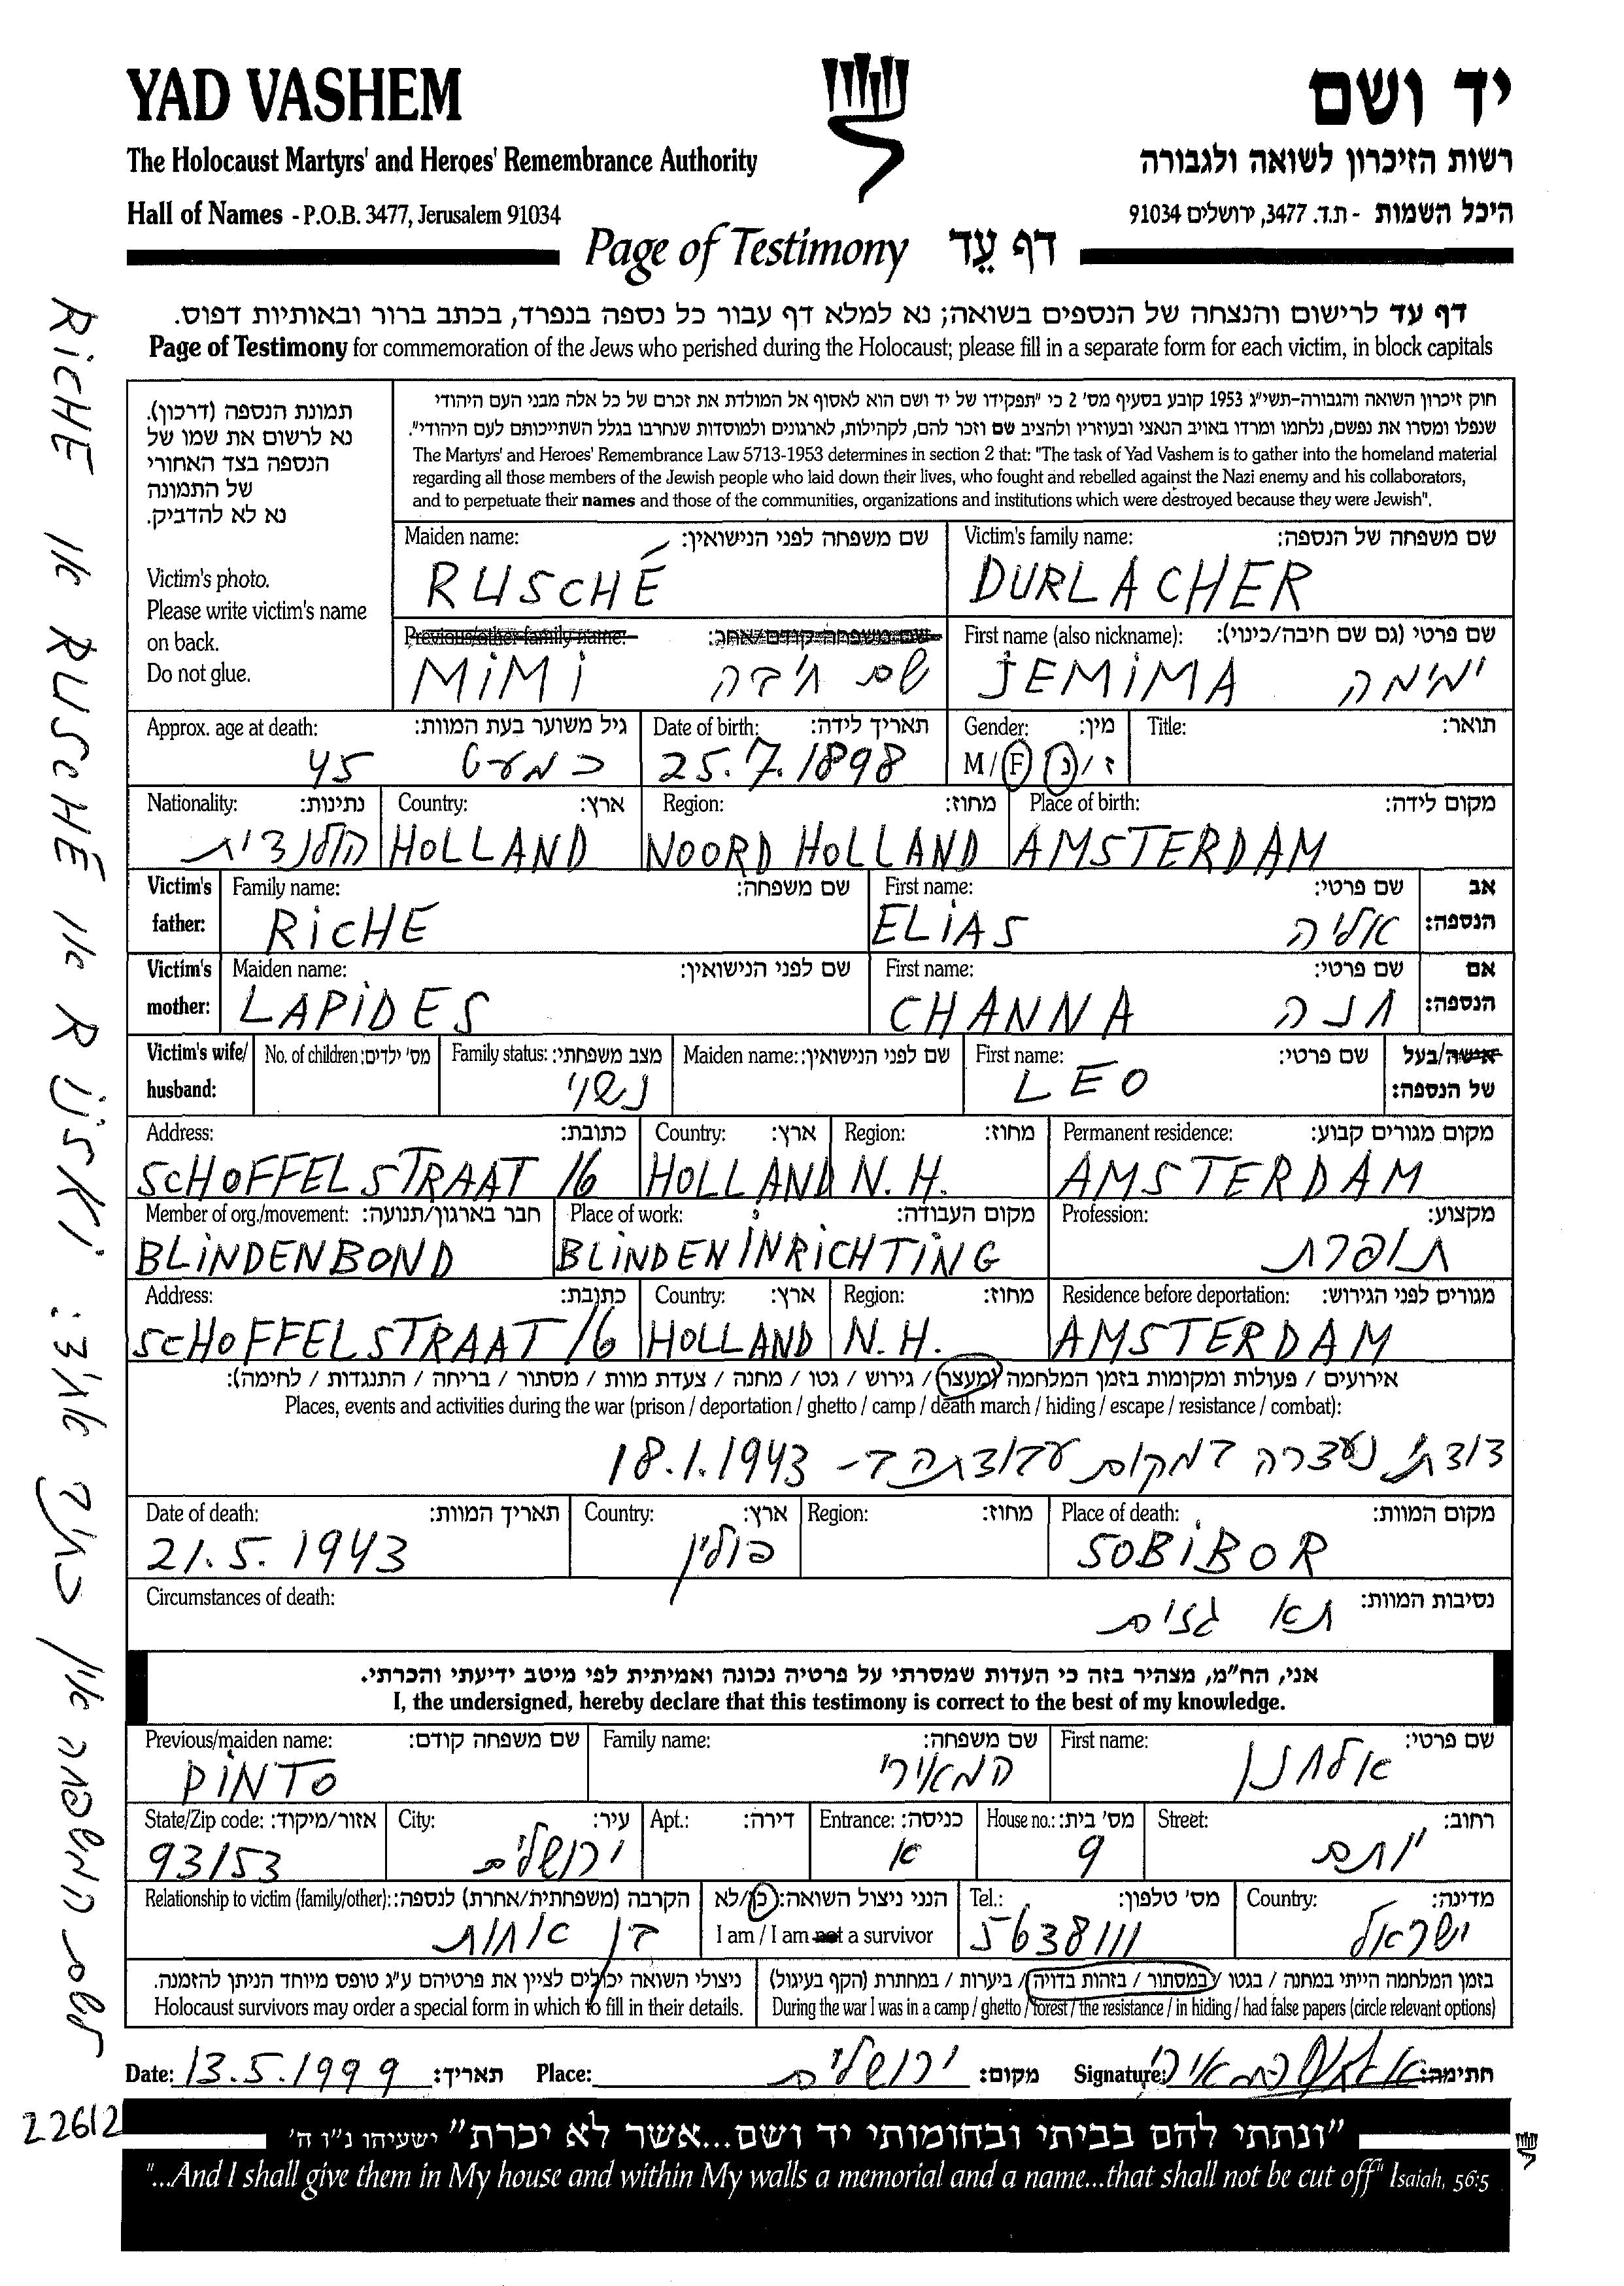 YAD VASHEM
יד ושם
The Holocaust Martyrs' and Heroes' Remembrance Authority
רשות הזיכרון לשואה ולגבורה
Hall of Names - P.O.B. 3477, Jerusalem 91034
היכל השמות - ת.ד. 3477, ירושלים 91034
Page of Testimony דף עֵד
דף עד לרישום והנצחה של הנספים בשואה; נא למלא דף עבור כל נספה בנפרד, בכתב ברור ובאותיות דפוס.
Page of Testimony for commemoration of the Jews who perished during the Holocaust; please fill in a separate form for each victim, in block capitals
תמונת הנספה (דרכון).
נא לרשום את שמו של
הנספה בצד האחורי
של התמונה
נא לא להדביק.
Victim's photo.
Please write victim's name
on back.
Do not glue.
חוק זיכרון השואה והגבורה-תשי"ג 1953 קובע בסעיף מס' 2 כי "תפקידו של יד ושם הוא לאסוף אל המולדת את זכרם של כל אלה מבני העם היהודי
שנפלו ומסרו את נפשם, נלחמו ומרדו באויב הנאצי ובעוזריו ולהציב שם וזכר להם, לקהילות, לארגונים ולמוסדות שנחרבו בגלל השתייכותם לעם היהודי".
The Martyrs' and Heroes' Remembrance Law 5713-1953 determines in section 2 that: "The task of Yad Vashem is to gather into the homeland material
regarding all those members of the Jewish people who laid down their lives, who fought and rebelled against the Nazi enemy and his collaborators,
and to perpetuate their names and those of the communities, organizations and institutions which were destroyed because they were Jewish".
Maiden name: שם משפחה לפני הנישואין: Victim's family name: שם משפחה של הנספה:
RUSCHÉ DURLACHER
Previous/other family name: שם משפחה קודם/אחר: First name (also nickname): שם פרטי (גם שם חיבה/כינוי):
MiMi שם חיבה JEMiMA ימימה
Approx. age at death: גיל משוער בעת המוות: Date of birth: תאריך לידה: Gender: מין: Title: תואר:
45 כמעט 25.7.1898 M / F ז / נ
Nationality: נתינות: Country: ארץ: Region: מחוז: Place of birth: מקום לידה:
הולנדית HOLLAND NOORD HOLLAND AMSTERDAM
Victim's father: Family name: שם משפחה: First name: שם פרטי: אב הנספה:
RiCHE ELiAS אליה
Victim's mother: Maiden name: שם לפני הנישואין: First name: שם פרטי: אם הנספה:
LAPiDES CHANNA חנה
Victim's wife/ husband: No. of children: מס' ילדים: Family status: מצב משפחתי: Maiden name: שם לפני הנישואין: First name: שם פרטי: אישה/בעל של הנספה:
נשוי LEO
Address: כתובת: Country: ארץ: Region: מחוז: Permanent residence: מקום מגורים קבוע:
SCHOFFELSTRAAT 16 HOLLAND N.H. AMSTERDAM
Member of org./movement: חבר בארגון/תנועה: Place of work: מקום העבודה: Profession: מקצוע:
BLiNDENBOND BLiNDENiNRiCHTiNG תופרת
Address: כתובת: Country: ארץ: Region: מחוז: Residence before deportation: מגורים לפני הגירוש:
SCHOFFELSTRAAT 16 HOLLAND N.H. AMSTERDAM
אירועים / פעולות ומקומות בזמן המלחמה (מעצר / גירוש / גטו / מחנה / צעדת מוות / מסתור / בריחה / התנגדות / לחימה):
Places, events and activities during the war (prison / deportation / ghetto / camp / death march / hiding / escape / resistance / combat):
דודתי נעצרה במקום עבודתה ב- 18.1.1943
Date of death: תאריך המוות: Country: ארץ: Region: מחוז: Place of death: מקום המוות:
21.5.1943 פולין SOBiBOR
Circumstances of death: נסיבות המוות:
תא גזים
אני, הח"מ, מצהיר בזה כי העדות שמסרתי על פרטיה נכונה ואמיתית לפי מיטב ידיעתי והכרתי.
I, the undersigned, hereby declare that this testimony is correct to the best of my knowledge.
Previous/maiden name: שם משפחה קודם: Family name: שם משפחה: First name: שם פרטי:
PiNTO המאירי אלחנן
State/Zip code: אזור/מיקוד: City: עיר: Apt.: דירה: Entrance: כניסה: House no.: מס' בית: Street: רחוב:
93153 ירושלים א 9 יותם
Relationship to victim (family/other): הקרבה (משפחתית/אחרת) לנספה: הנני ניצול השואה: כן/לא Tel.: מס' טלפון: Country: מדינה:
בן אחות I am / I am not a survivor 5638111 ישראל
ניצולי השואה יכולים לציין את פרטיהם ע"ג טופס מיוחד הניתן להזמנה.
Holocaust survivors may order a special form in which to fill in their details.
בזמן המלחמה הייתי במחנה / בגטו / במסתור / בזהות בדויה / ביערות / במחתרת (הקף בעיגול)
During the war I was in a camp / ghetto / forest / the resistance / in hiding / had false papers (circle relevant options)
Date: 13.5.1999 תאריך: Place: ירושלים מקום: Signature: חתימה:
22612
"ונתתי להם בביתי ובחומותי יד ושם...אשר לא יכרת" ישעיהו נ"ו ה'
"...And I shall give them in My house and within My walls a memorial and a name...that shall not be cut off" Isaiah, 56:5
לשם המשפחה אין כתיב אחיד: RiCHE או RUSCHÉ או RÜSKi